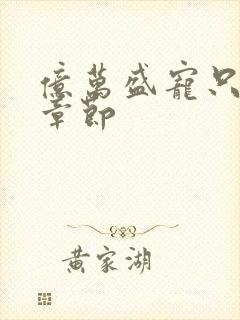 億萬盛寵只
章節
黃家湖